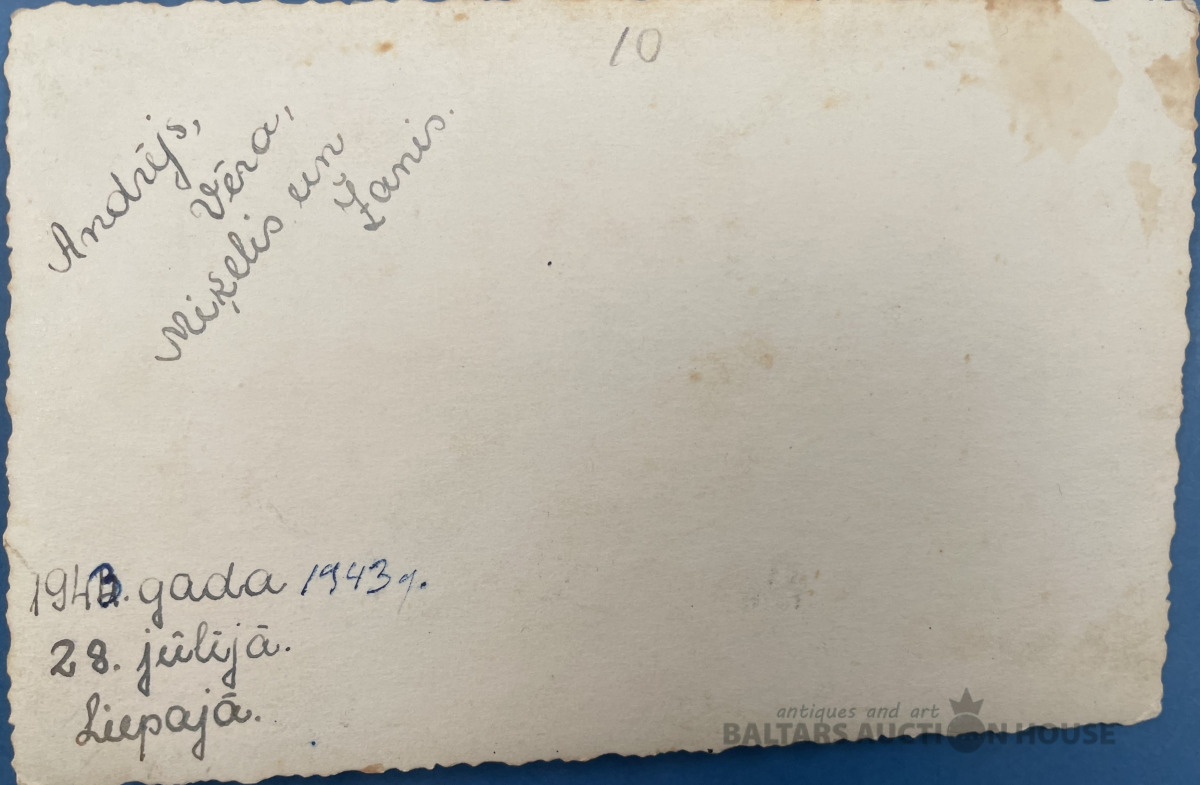 10
Andrējs,
Vēra,
Miķelis un
Žanis.
1943. gada 1943 g.
28. jūlijā.
Liepajā.
antiques and art
BALTARS AUCTION HOUSE